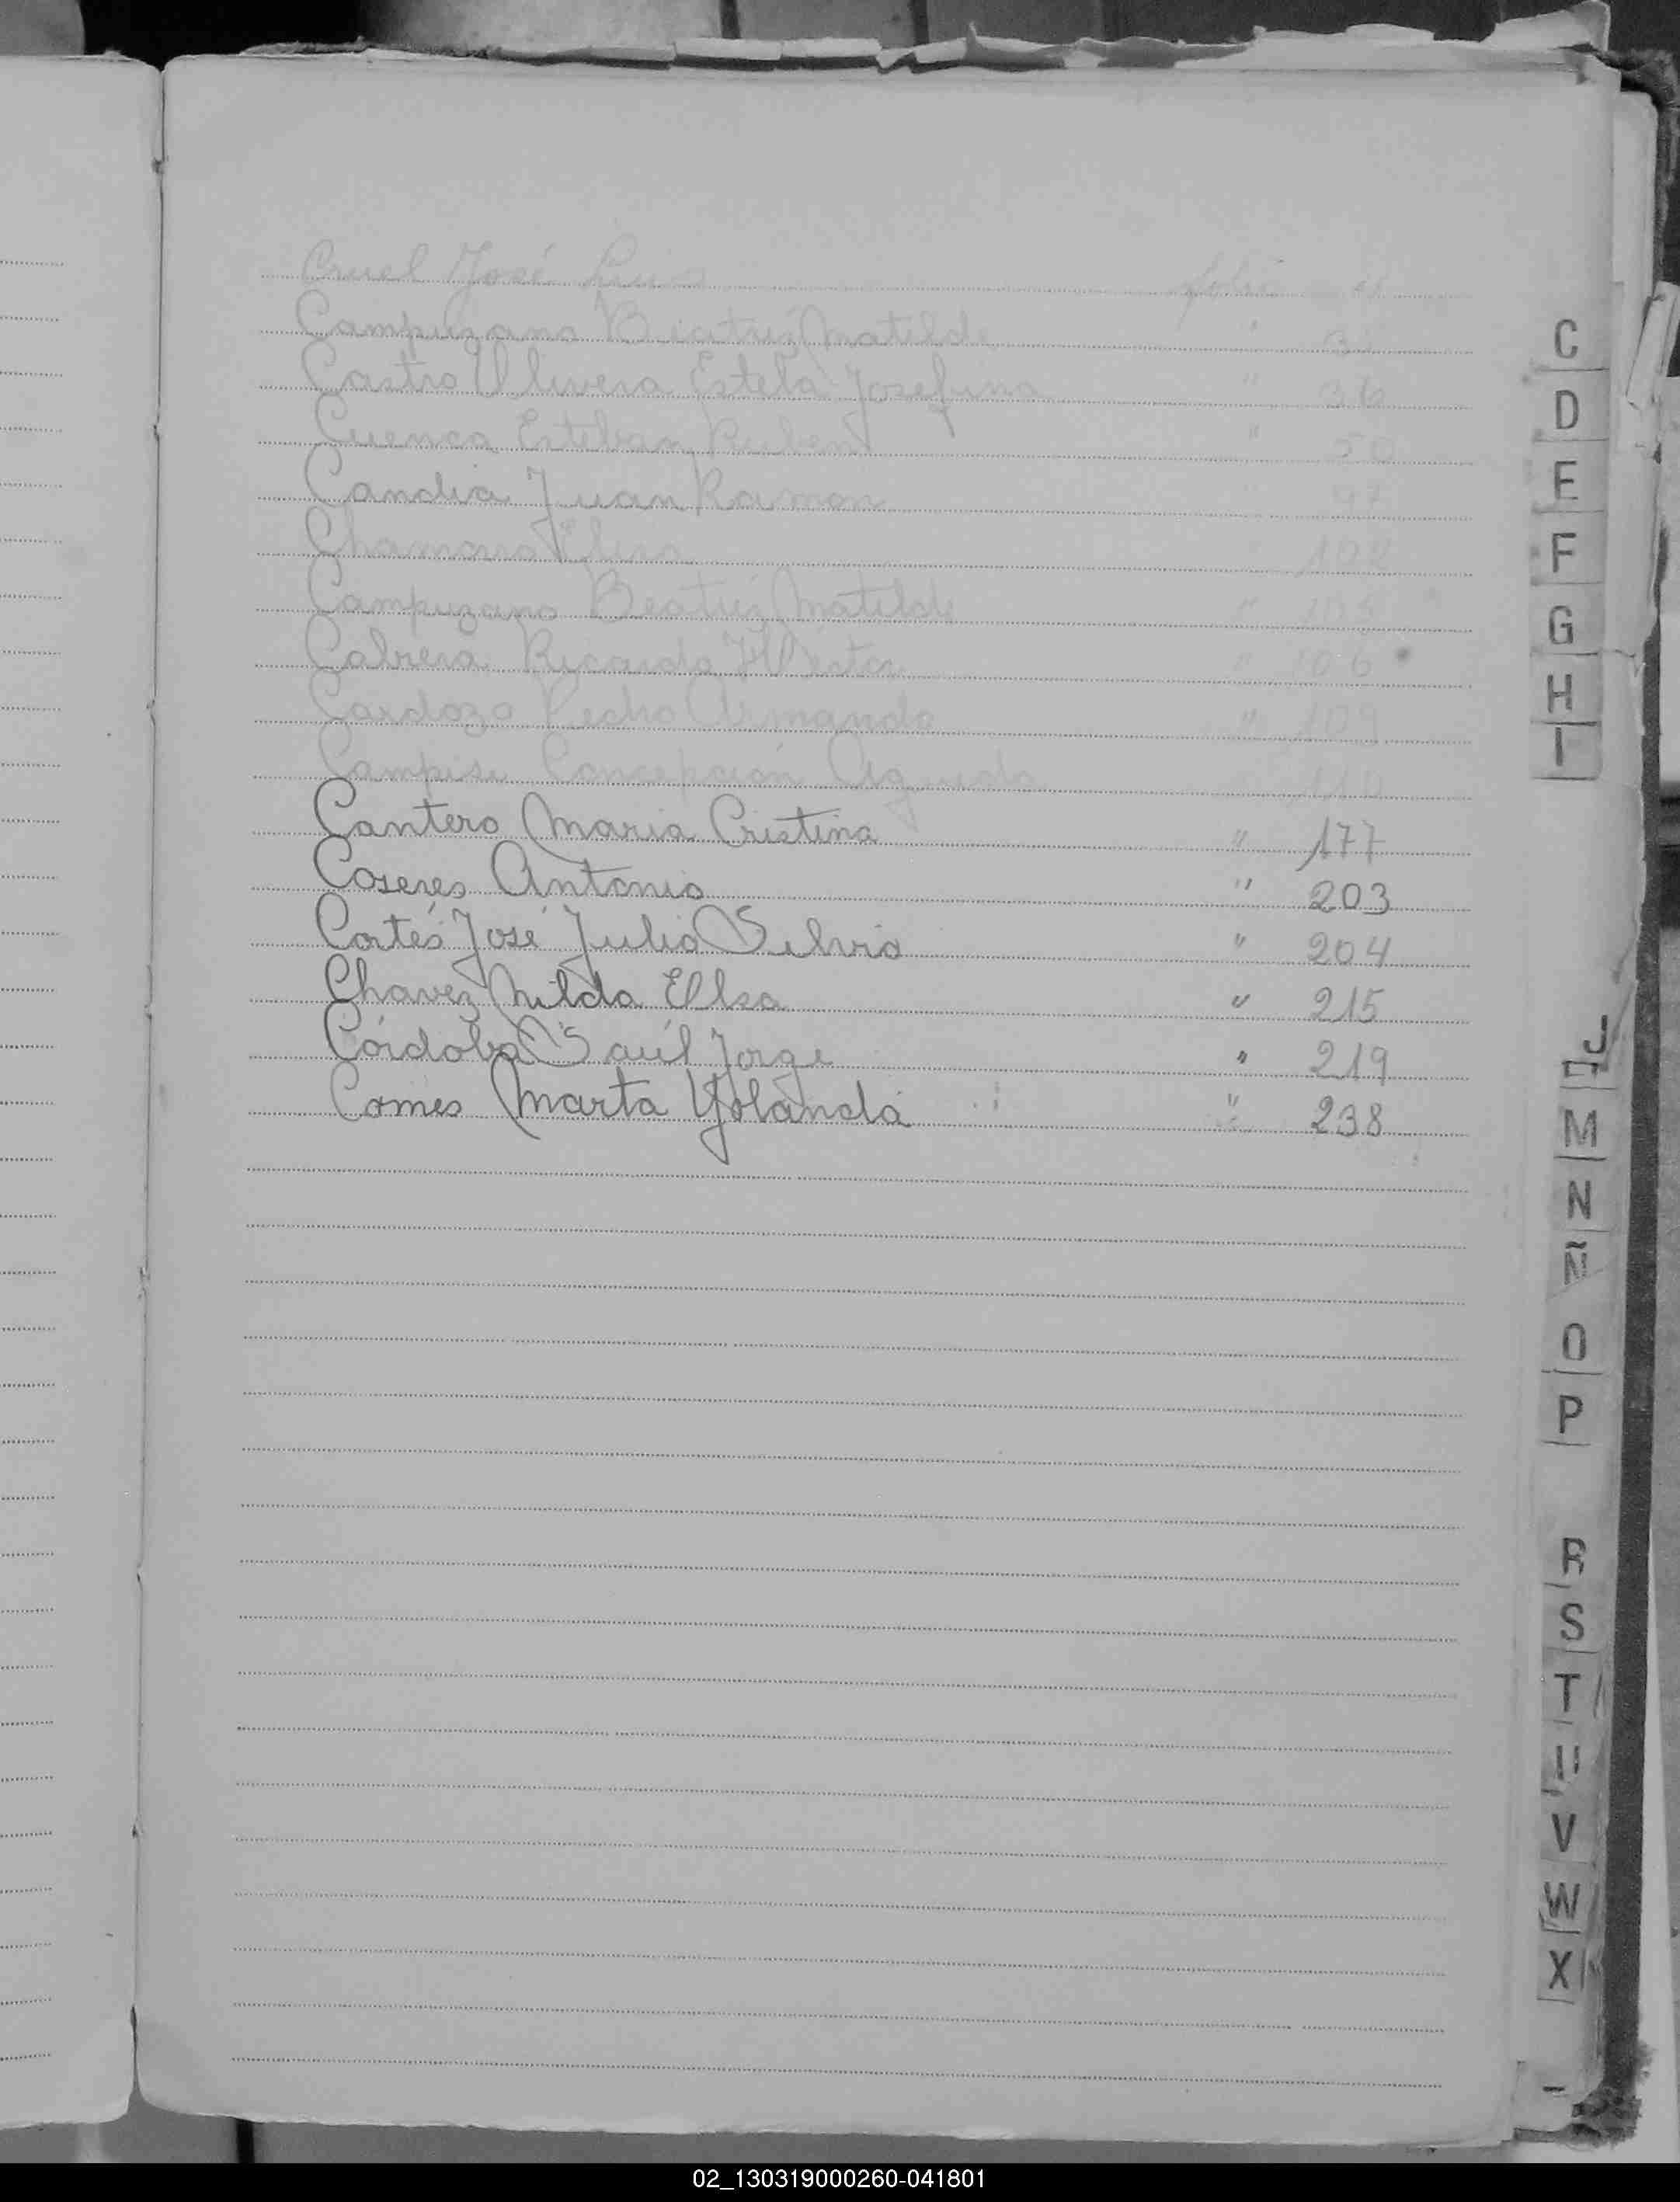 Cruel José Luis folio
Campuzano Beatriz Matilde "
Castro Olivera Estela Josefina " 36
Cuenca Esteban Ruben " 50
Candia Juan Ramon 97
Chamorro 102
Campuzano Beatriz Matilde " 105
Cabrera Ricardo Alberto " 106
Cardozo Pedro Armando " 109
Campisi Concepción Agueda 110
Cantero Maria Cristina " 177
Caseres Antonio " 203
Cortés José Julio Silvio " 204
Chavez Nilda Elsa " 215
Córdoba Saúl Jorge " 219
Comes Marta Yolanda " 238
C
D
E
F
G
H
I
J
M
N
Ñ
O
P
R
S
T
U
V
W
X
02_130319000260-041801